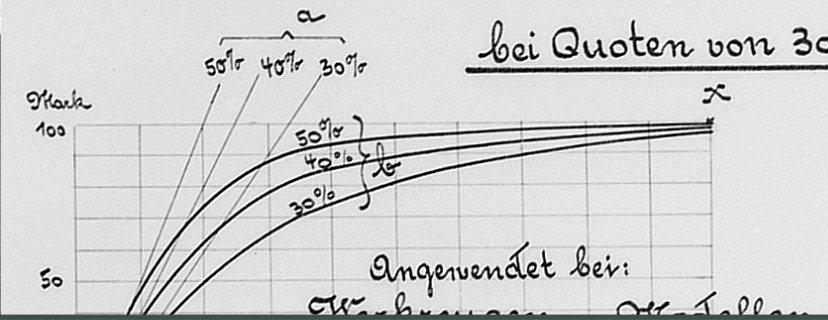 a
50% 40% 30%
bei Quoten von 30
Mark
100
x
50%
40%
b
30%
50
Angewendet bei: